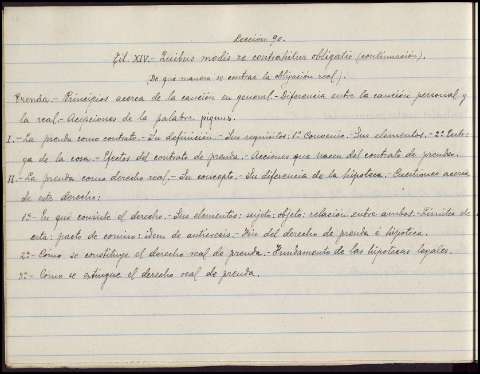 Lección 90.
Tit. XIV.- Quibus modis re contrahitur obligatio (continuación).
(De que manera se contrae la obligación real).
Prenda.- Principios acerca de la caución en general.- Diferencia entre la caución personal y
la real.- Acepciones de la palabra pignus.
I.- La prenda como contrato.- Su definición.- Sus requisitos: 1º Convenio.- Sus elementos.- 2º Entre-
ga de la cosa.- Efectos del contrato de prenda.- Acciones que nacen del contrato de prenda.
II.- La prenda como derecho real.- Su concepto.- Su diferencia de la hipoteca.- Cuestiones acerca
de este derecho:
1º- En qué consiste el derecho.- Sus elementos: sujeto: objeto: relación entre ambos.- Límites de
esta: pacto de comiso: idem de anticresis.- Fin del derecho de prenda é hipoteca.
2º- Como se constituye el derecho real de prenda.- Fundamento de las hipotecas legales.
3º- Como se extingue el derecho real de prenda.